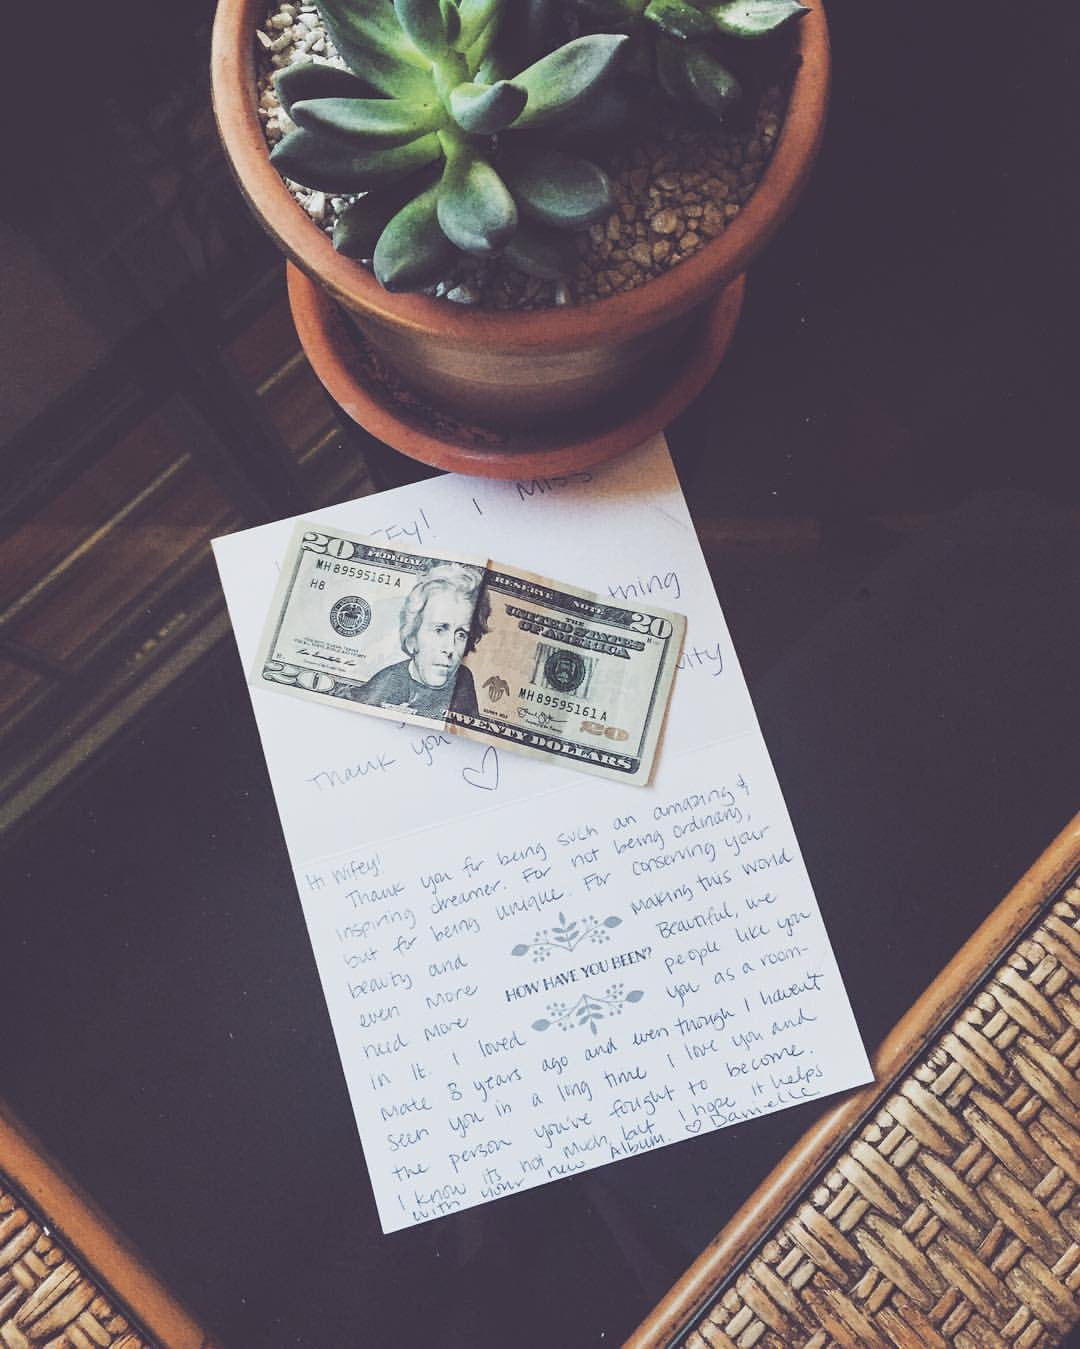 I MISS
thing
Thank you ♡
20 FEDERAL RESERVE NOTE
MH 89595161 A
H8
THE
UNITED STATES
OF AMERICA
20
MH 89595161 A
20
TWENTY DOLLARS
20
Hi Wifey!
Thank you for being such an amazing &
inspiring dreamer. For not being ordinary,
but for being unique. For conserving your
beauty and making this world
even more Beautiful, we
need more people like you
HOW HAVE YOU BEEN?
in it. I loved you as a room-
mate 8 years ago and even though I haven't
seen you in a long time I love you and
the person you've fought to become.
I know it's not much, but I hope it helps
with your new Album. ♡ Danielle